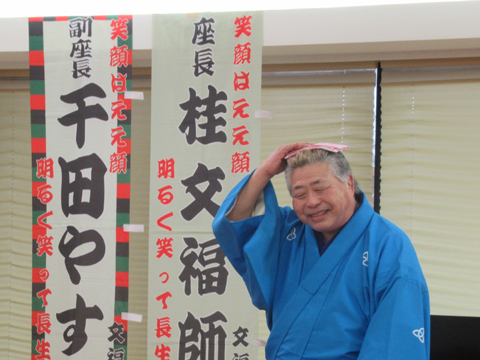 笑顔は元元顔
座長
桂文福師
明るく笑って長生
文福
笑顔は元元顔
副座長
千田やす
明るく笑って長生
文福